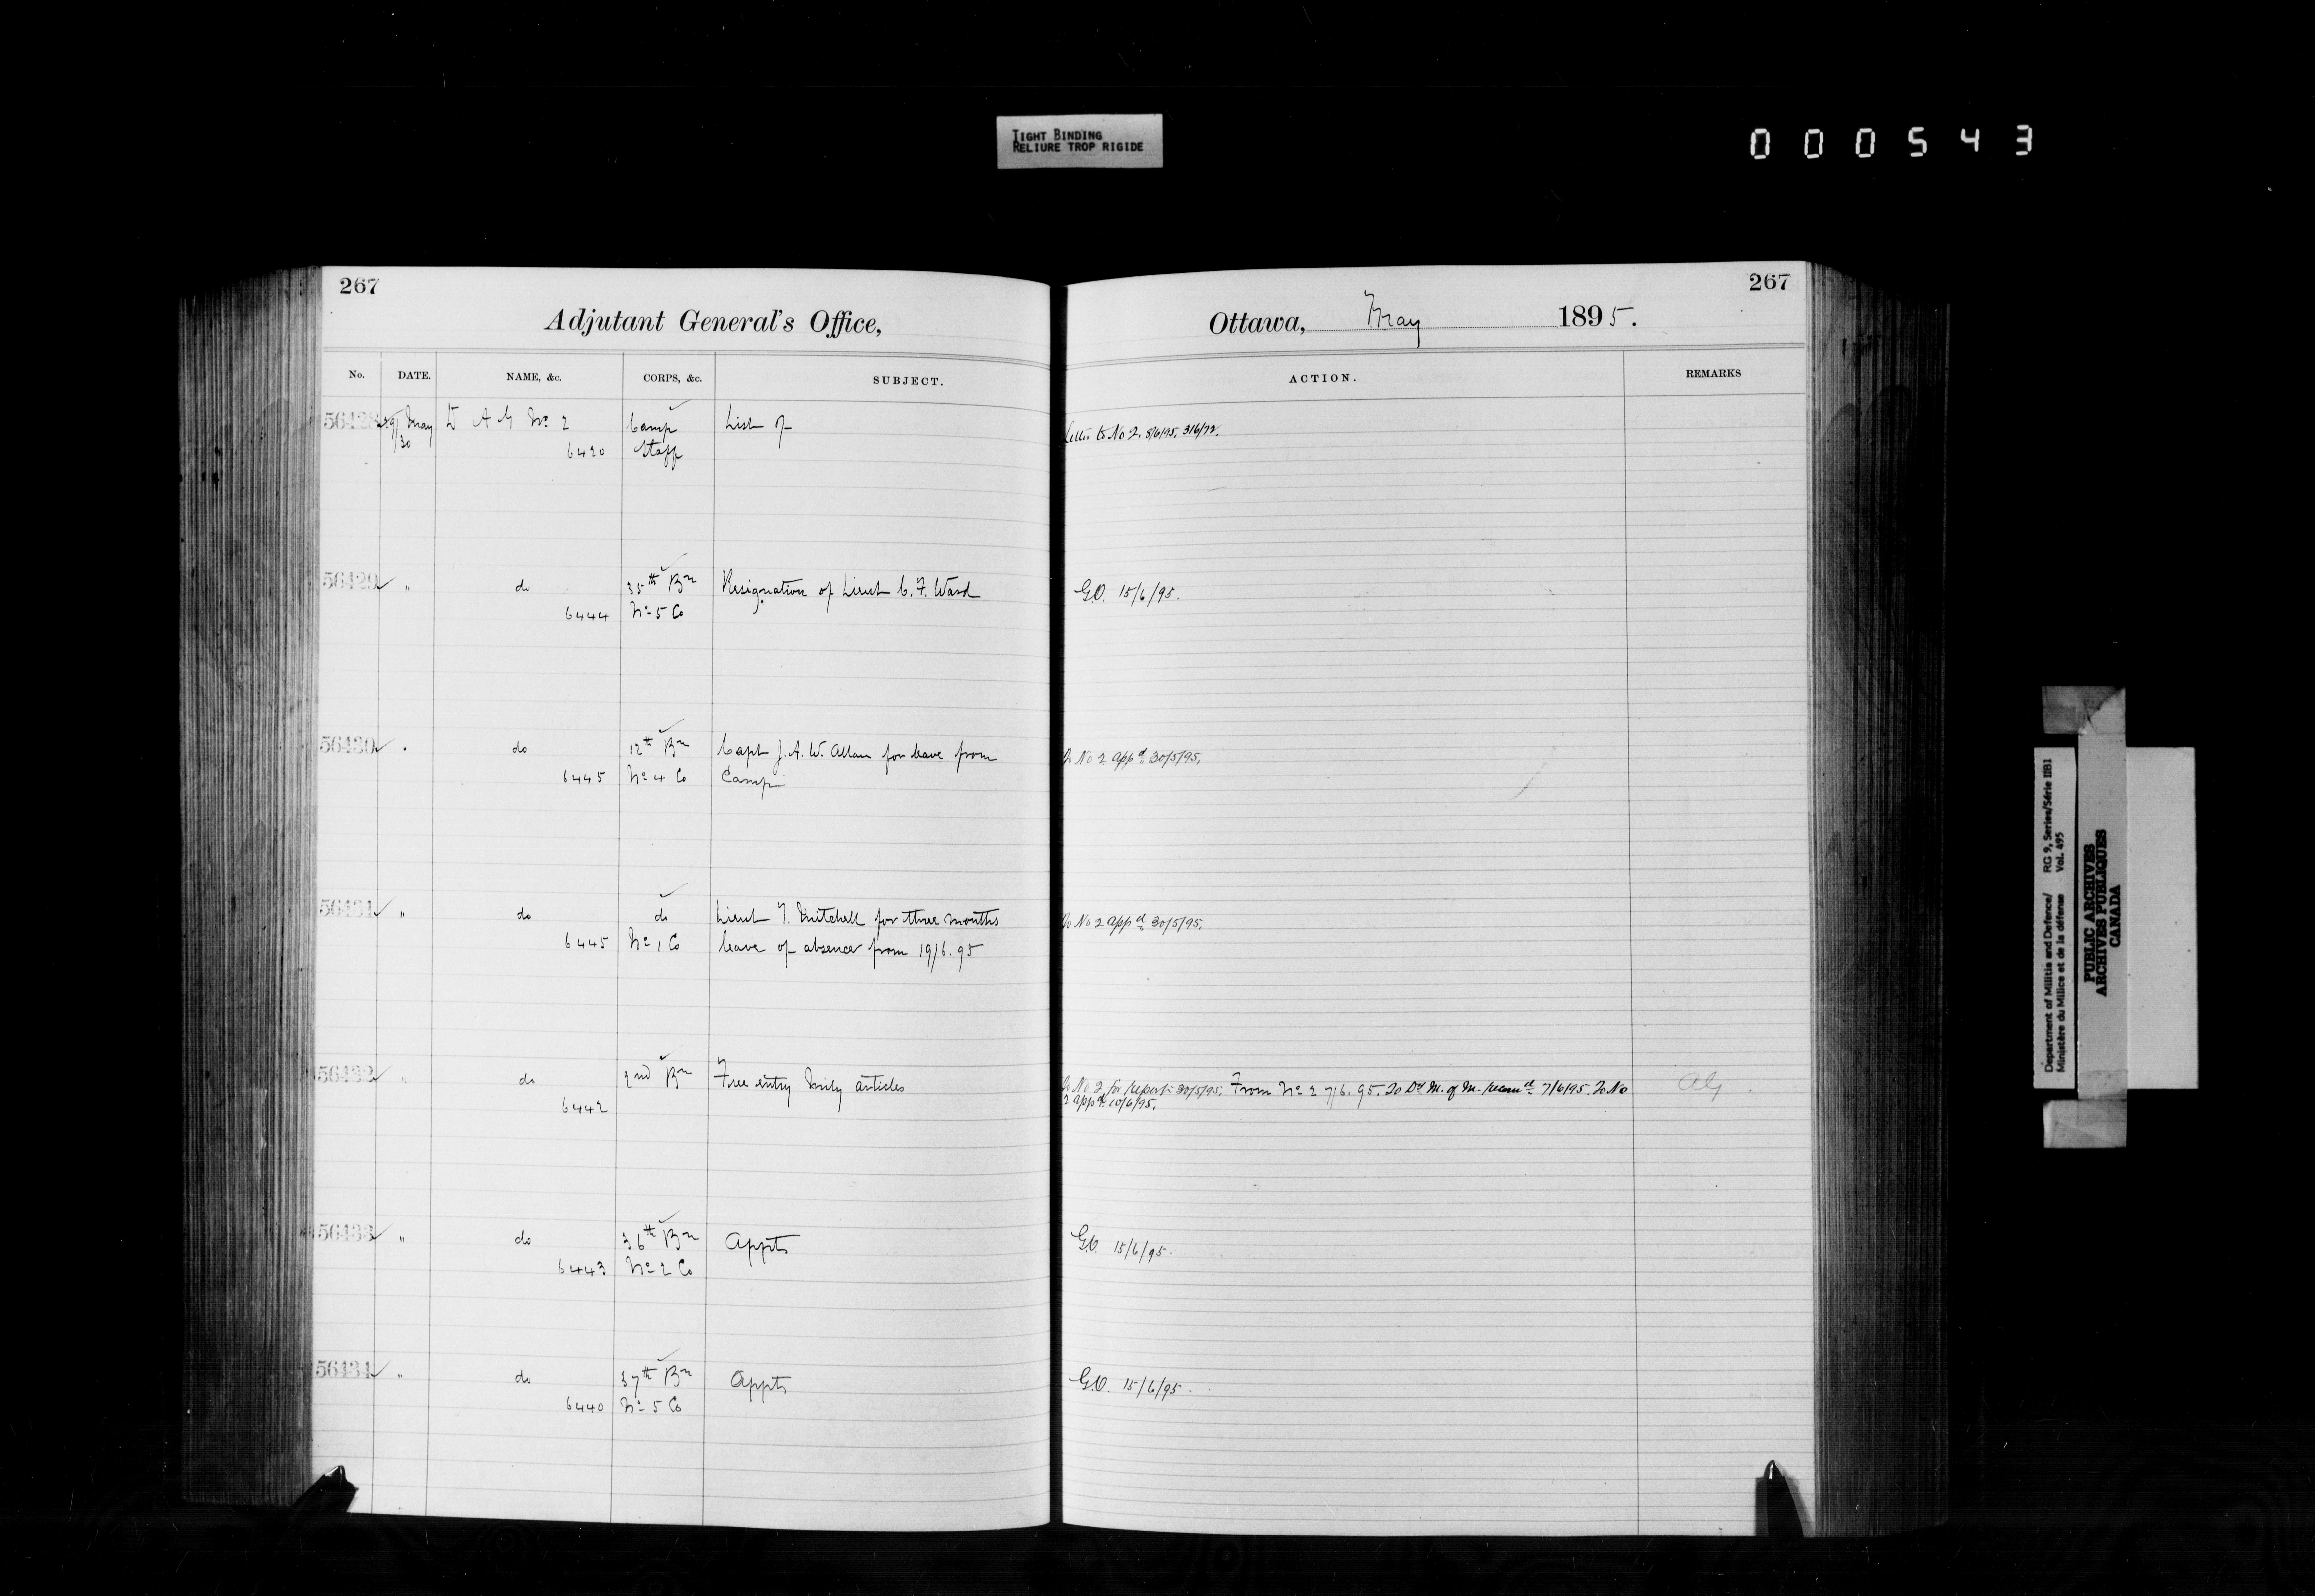 TIGHT BINDING
RELIURE TROP RIGIDE
000543
267
Adjutant General's Office,
No. DATE. NAME, &c. CORPS, &c. SUBJECT.
56428 29/30 May D A G No 2 Camp List of
6420 Staff
56429 " do 35th Bn Resignation of Lieut C. F. Ward
6444 No 5 Co
56430 " do 12th Bn Capt J. A. W. Allan for leave from
6445 No 4 Co Camp
56431 " do do Lieut T. Mitchell for three months
6445 No 1 Co leave of absence from 19/6.95
56432 " do 2nd Bn Free entry Mily articles
6442
56433 " do 36th Bn Appts
6443 No 2 Co
56434 " do 37th Bn Appts
6440 No 5 Co
267
Ottawa, May 1895.
ACTION. REMARKS
Letter to No 2, 5/6/95.
G.O. 15/6/95.
To No 2 appd 30/5/95.
To No 2 appd 30/5/95.
To No 2 for report 30/5/95. From No 2 7/6.95. To D M. of M. recomd 7/6/95. To No AG
2 appd 10/6/95.
G.O. 15/6/95.
G.O. 15/6/95.
Department of Militia and Defence/ RG 9, Series/Série IIB1
Ministère du Milice et de la défense Vol. 495
PUBLIC ARCHIVES
ARCHIVES PUBLIQUES
CANADA